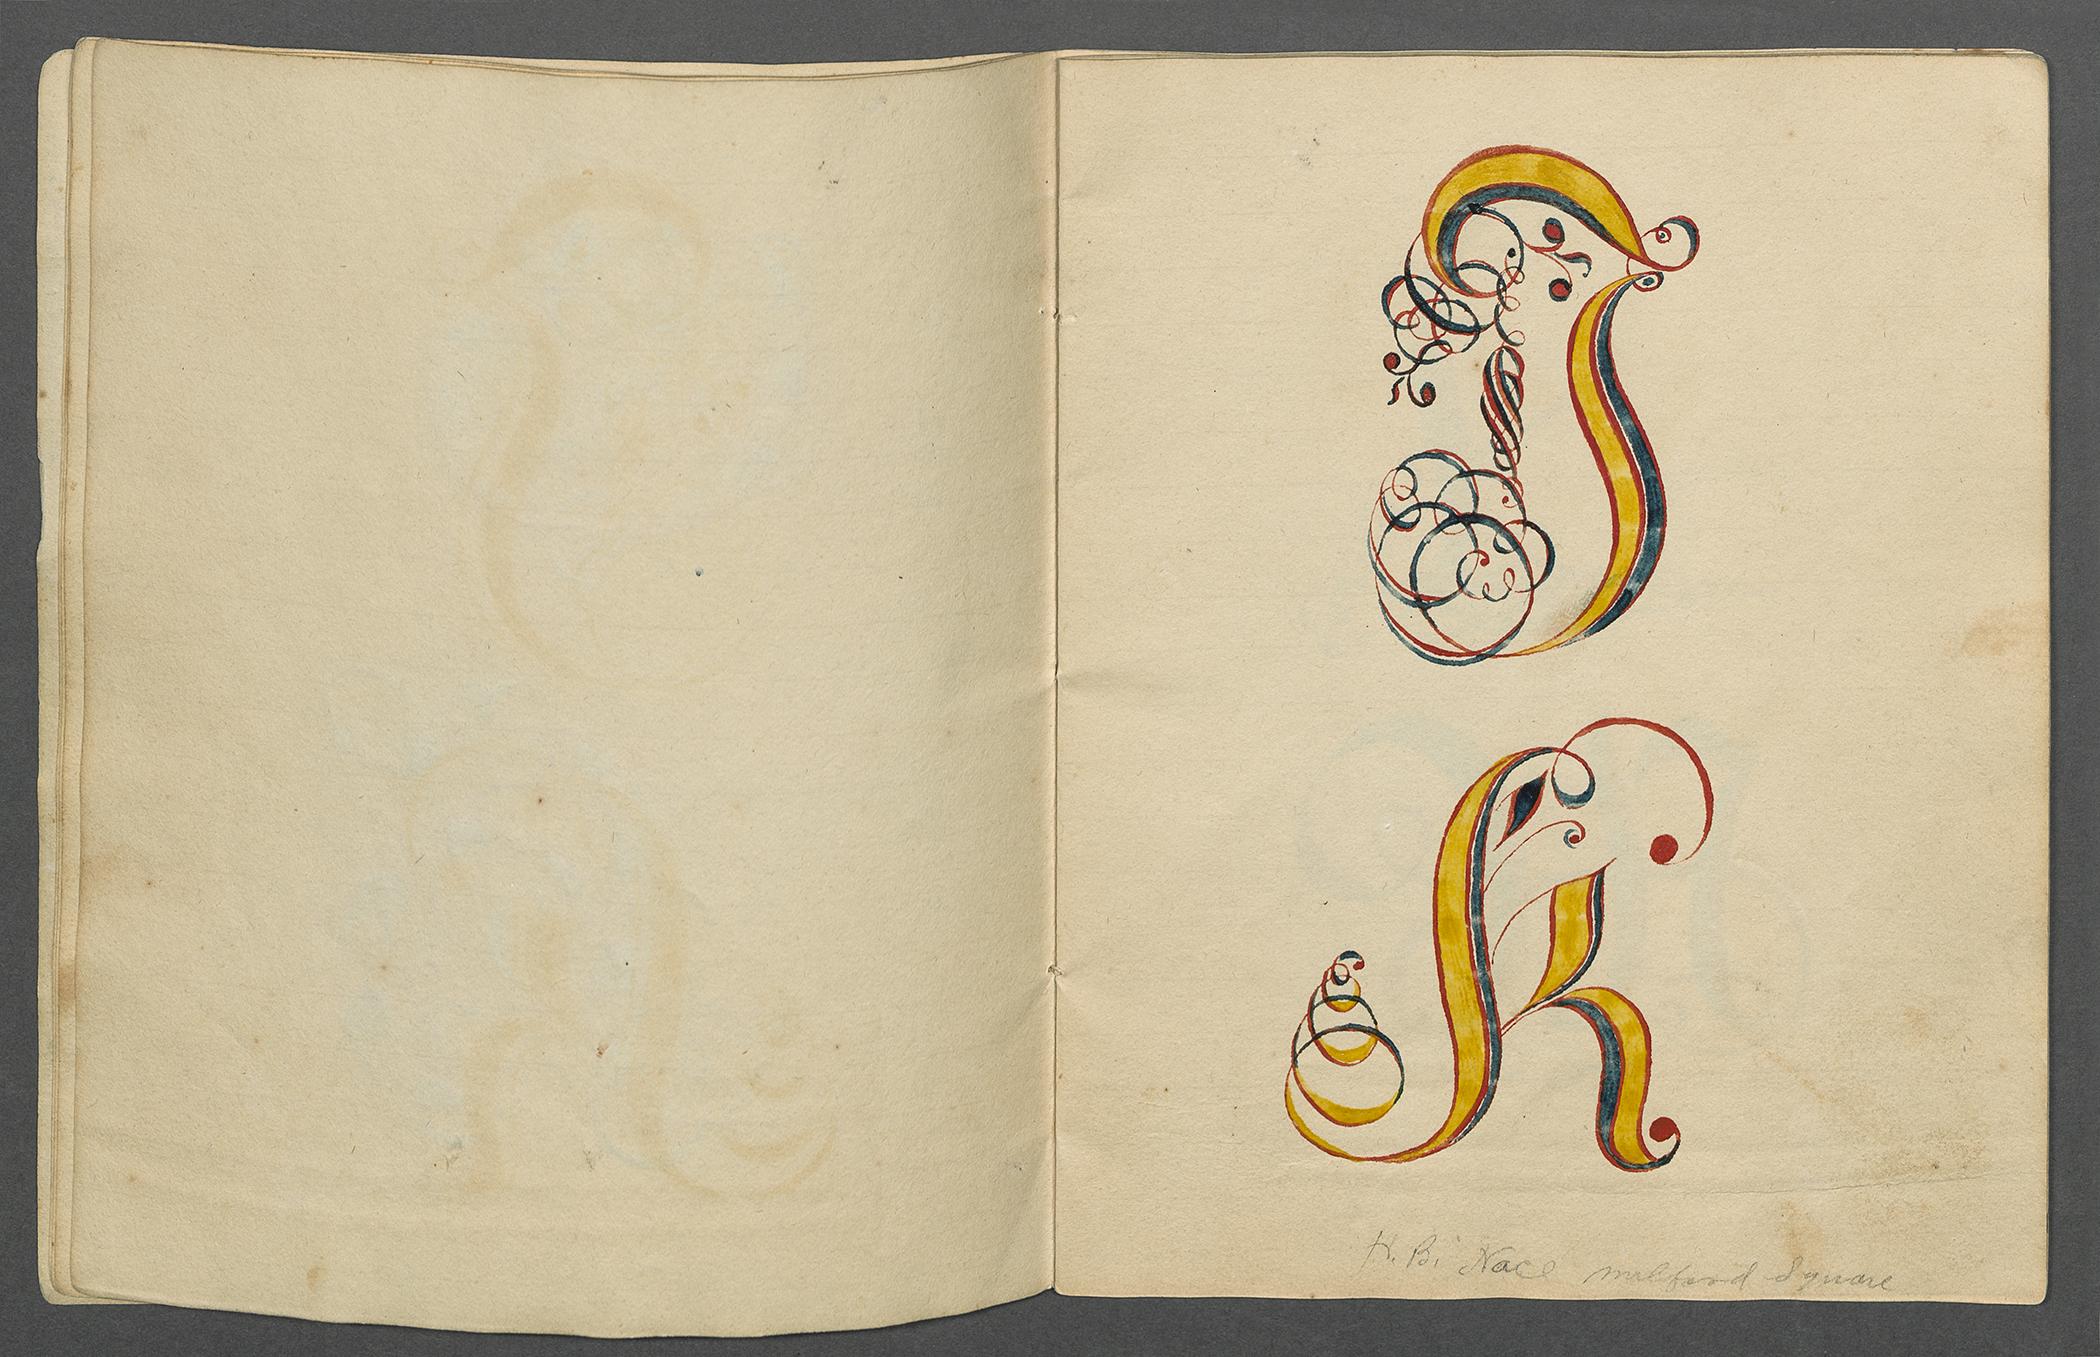 J
K
H. B. Nace Milford Square